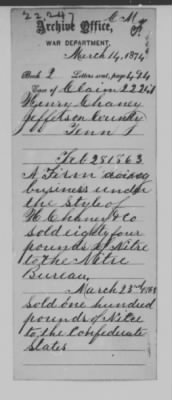 22247
Archive Office,
WAR DEPARTMENT,
March 14, 1874
Book 2 Letters sent, page 424
Case of Claim 22261
Henry Chaney
Jefferson County
Tenn
Feb 28 1863
A Firm doing
business under
the style of
H Chaney & Co
sold eighty four
pounds of Nitre
to the Nitre
Bureau,
March 23rd 1863
sold one hundred
pounds of Nitre
to the Confederate
States